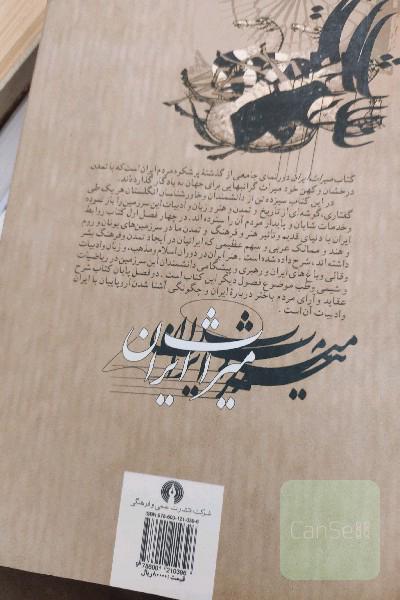 کتاب میراث ایران دورنمای جامعی از گذشتهٔ پرشکوه مردم ایران است که با تمدن
درخشان و کهن خود میراث گرانبهایی برای جهان به یادگار گذارده‌اند.
در این کتاب سیزده تن از دانشمندان و خاورشناسان انگلستان هر یک طی
گفتاری، گوشه‌ای از تاریخ و تمدن و هنر و زبان و ادبیات این سرزمین را باز نموده
و خدمات شایان و پایدار مردم آن را ستوده‌اند. در چهار فصل اول کتاب روابط
ایران با دنیای قدیم و تأثیر هنر و فرهنگ و تمدن ما در سرزمین‌های یونان و روم
و هند و ممالک عربی و سهم عظیمی که ایرانیان در ایجاد تمدن و فرهنگ بشر
داشته‌اند، شرح داده شده است. هنر ایران در دوران اسلام و مذهب، و زبان و ادبیات
و قالی و باغ‌های ایران و رهبری و پیشگامی دانشمندان این سرزمین در ریاضیات
و شیمی و طب موضوع فصول دیگر این کتاب است. دو فصل پایان کتاب شرح
عقاید و آرای مردم باختر دربارهٔ ایران و چگونگی آشنا شدن اروپاییان با ایران
و ادبیات آن است.
میراث ایران
شرکت انتشارات علمی و فرهنگی
CanSe